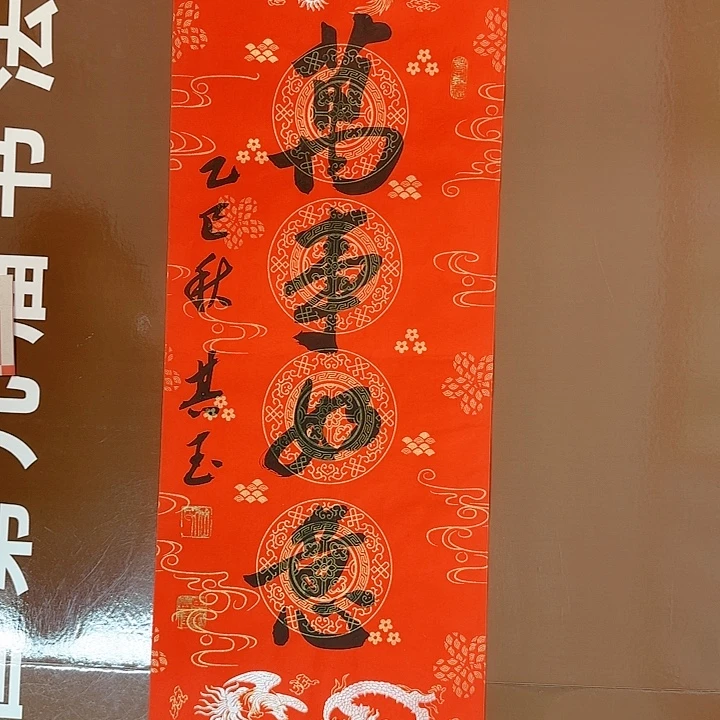 萬事如意
乙巳秋 其玉
书法